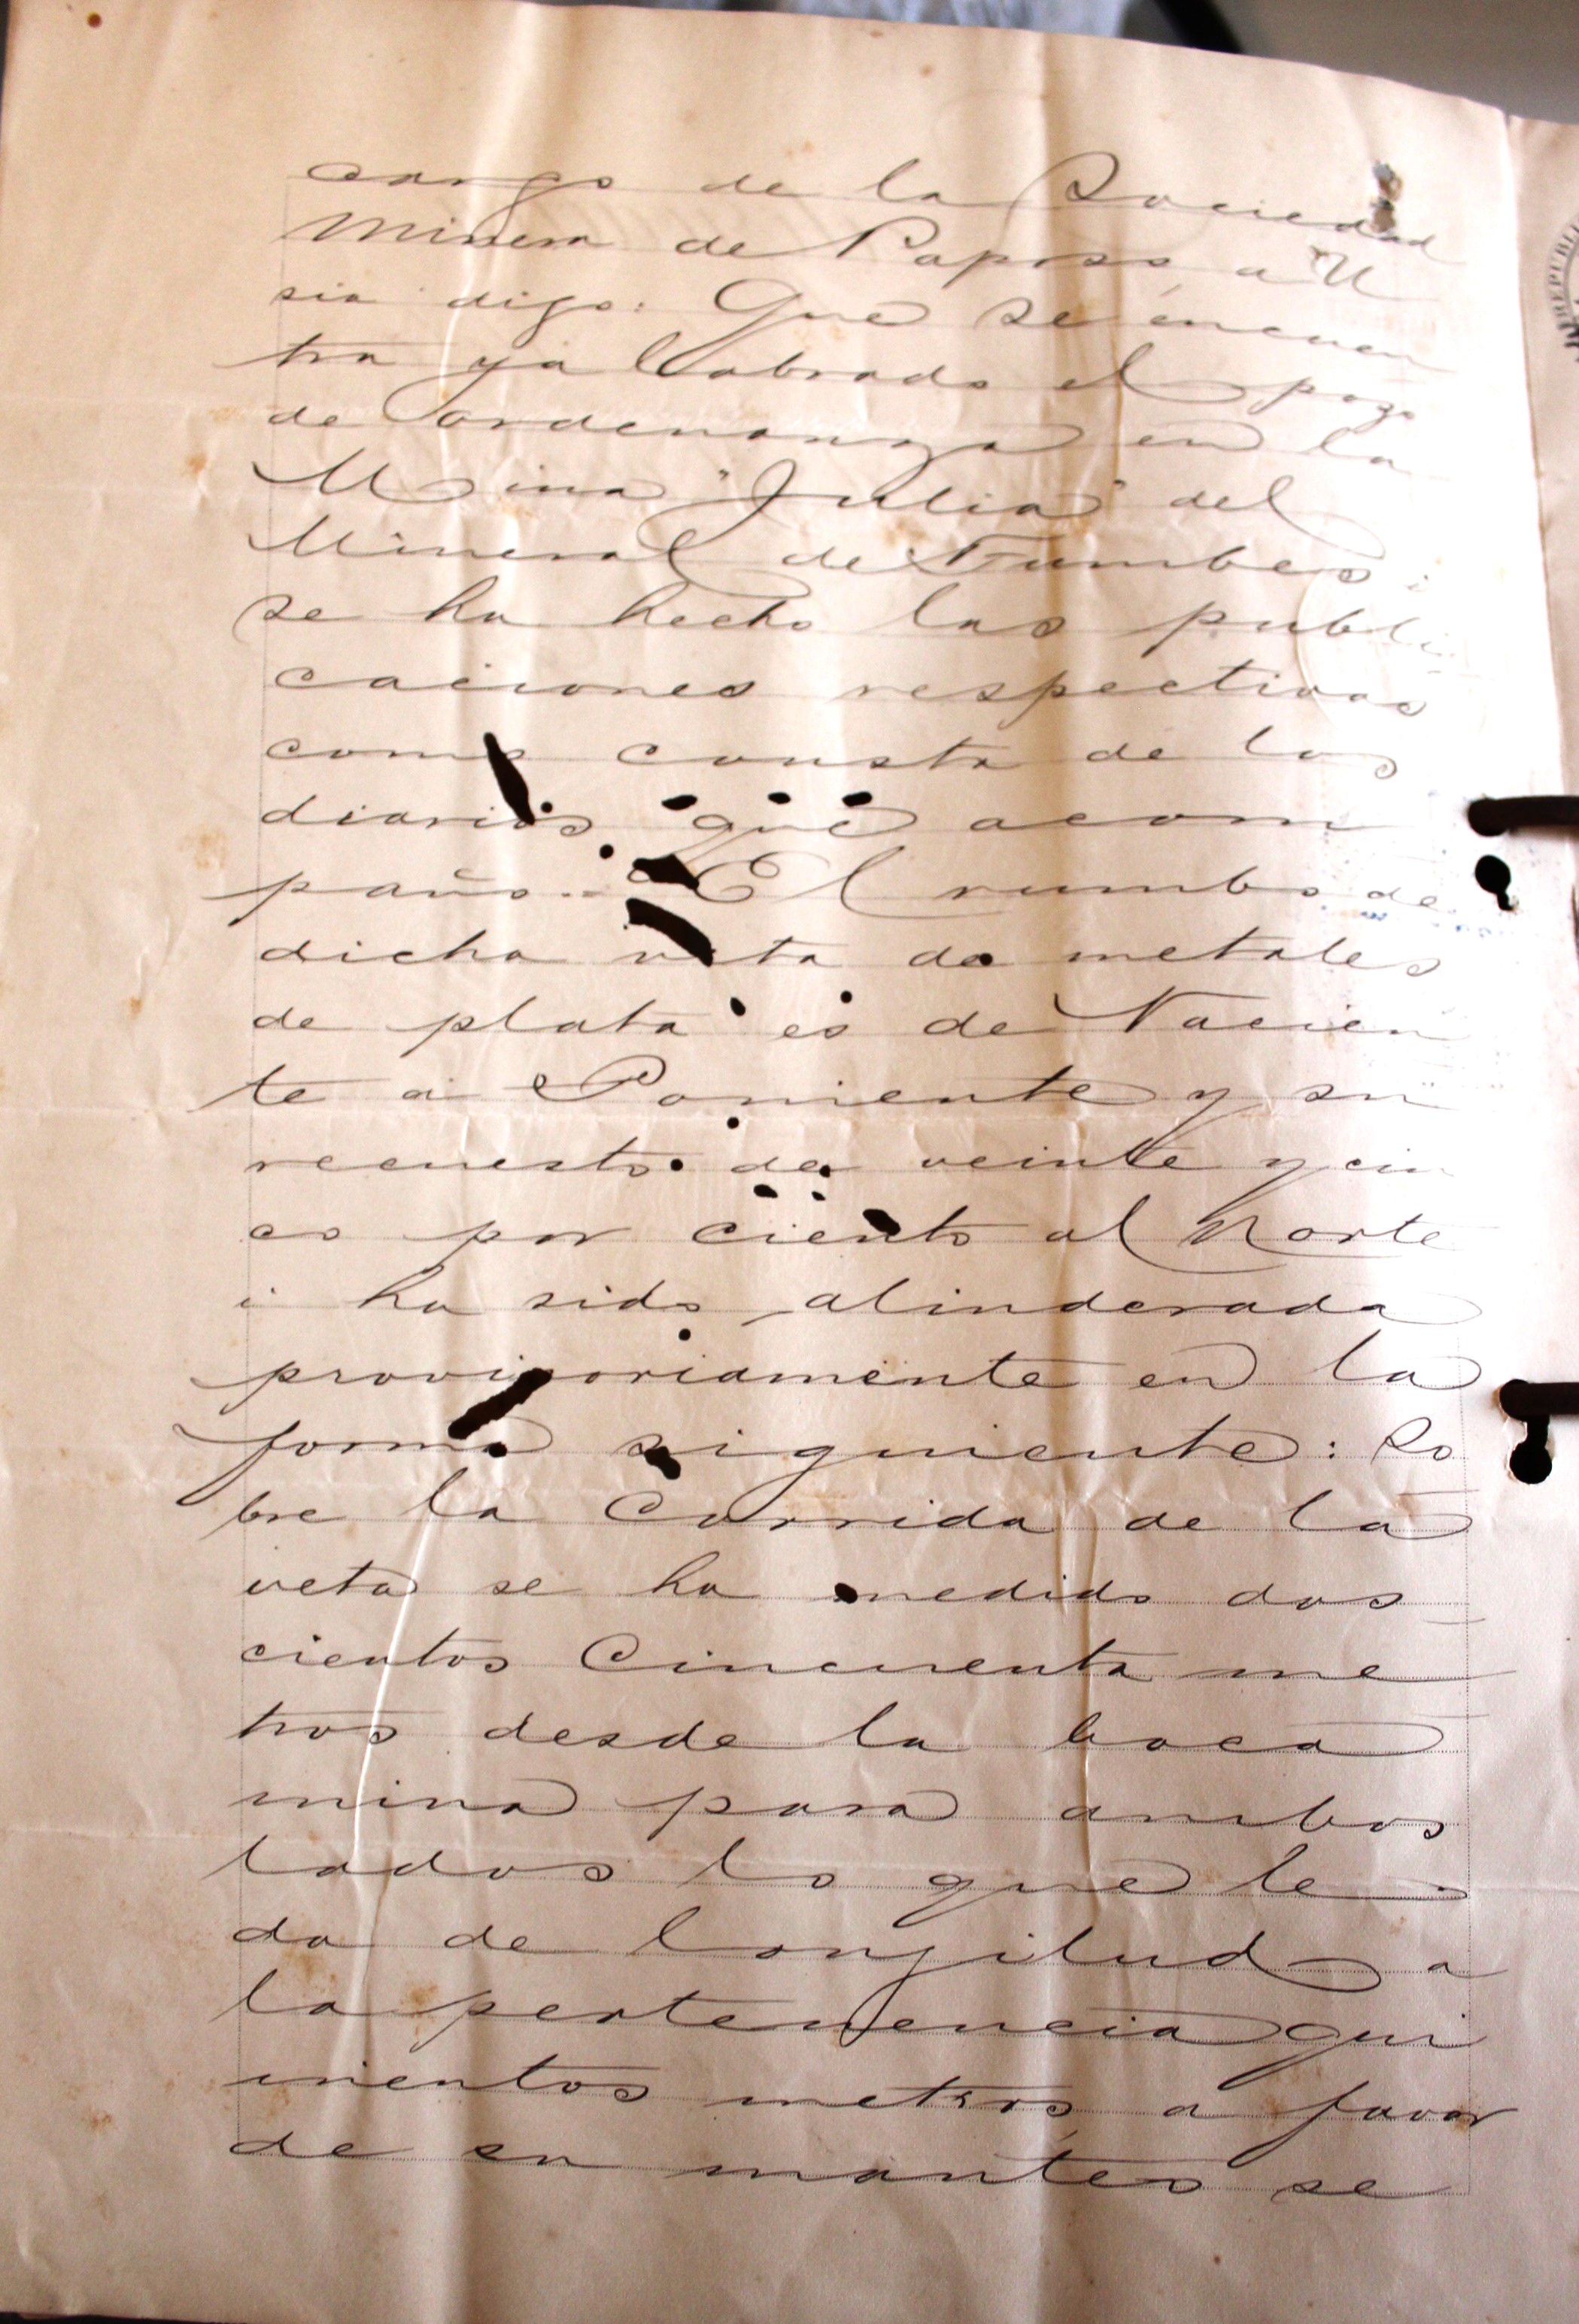 cargo de la Sociedad
Minera de Paposo, a U
sia digo: Que se encuen
tra ya labrado el pozo
de ordenanza en la
Mina "Julia" del
Mineral de Tumbes i
se ha hecho las publi
caciones respectivas
como consta de los
diarios que acom
paño. - El rumbo de
dicha veta de metales
de plata es de Nacien
te á Poniente y su
recuesto de veinte y cin
co por ciento al Norte
i ha sido alinderada
provisoriamente en la
forma siguiente: So
bre la Corrida de la
veta se ha medido dos
cientos Cincuenta me
tros desde la boca
mina para ambos
lados lo que le
da de longitud a
la pertenencia qui
nientos metros, a favor
de su manteo se
REPUBLI